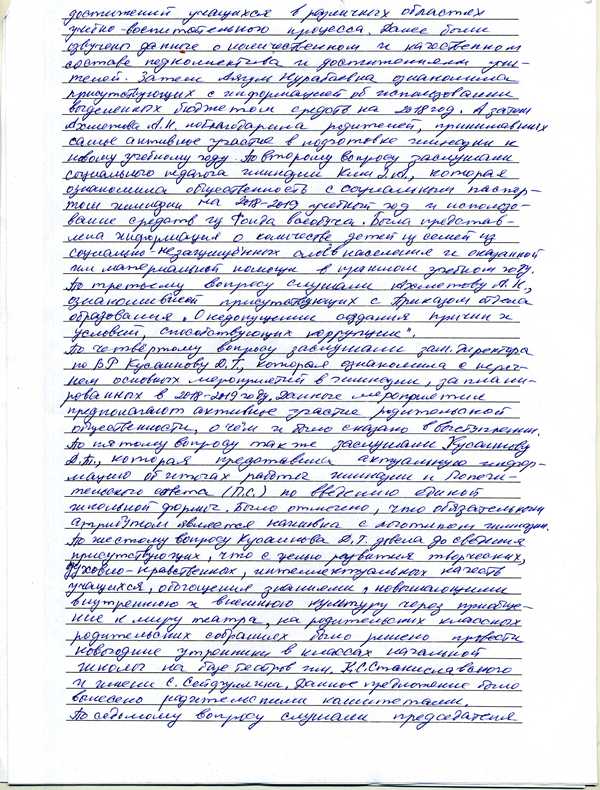 достижений учащихся в различных областях
учебно-воспитательного процесса. Далее были
озвучены данные о количественном и качественном
составе педколлектива и достижениям учи-
телей. Затем Нурабаевна ознакомила
присутствующих с информацией об использовании
выделенных бюджетом средств на 2018 год. А затем
Ахметова А.Н. поблагодарила родителей, принимавших
самое активное участие в подготовке гимназии к
новому учебному году. По второму вопросу заслушали
социального педагога гимназии Ким Э.Ю., которая
ознакомила общественность с социальным паспор-
том гимназии на 2018-2019 учебный год и использо-
вание средств из Фонда всеобуча. Была представ-
лена информация о количестве детей из семей из
социально-незащищённых слоёв населения и оказанной
им материальной помощи в прошлом учебном году.
По третьему вопросу слушали Ахметову А.Н.,
ознакомившей присутствующих с Приказом отдела
образования "О недопущении создания причин и
условий, способствующих коррупции".
По четвёртому вопросу заслушали зам. директора
по ВР Кусаинову Д.Т., которая ознакомила с переч-
нем основных мероприятий в гимназии, заплани-
рованных в 2018-2019 году. Данные мероприятия
предполагают активное участие родительской
общественности, о чём и было сказано в выступлении.
По пятому вопросу также заслушали Кусаинову
Д.Т., которая представила актуальную инфор-
мацию об итогах работы гимназии и Попечи-
тельского совета (П.С.) по введению единой
школьной формы. Было отмечено, что обязательным
атрибутом является нашивка с логотипом гимназии.
По шестому вопросу Кусаинова Д.Т. довела до сведения
присутствующих, что с целью развития творческих,
духовно-нравственных, интеллектуальных качеств
учащихся, обогащения знаниями,
внутреннюю и внешнюю культуру через приобще-
ние к миру театра, на родительских классных
родительских собраниях было решено провести
новогодние утренники в классах начальной
школы на базе театров им. К.С.Станиславского
и имени С. Сейфуллина. Данное предложение было
вынесено родительскими комитетами.
По седьмому вопросу слушали председателя